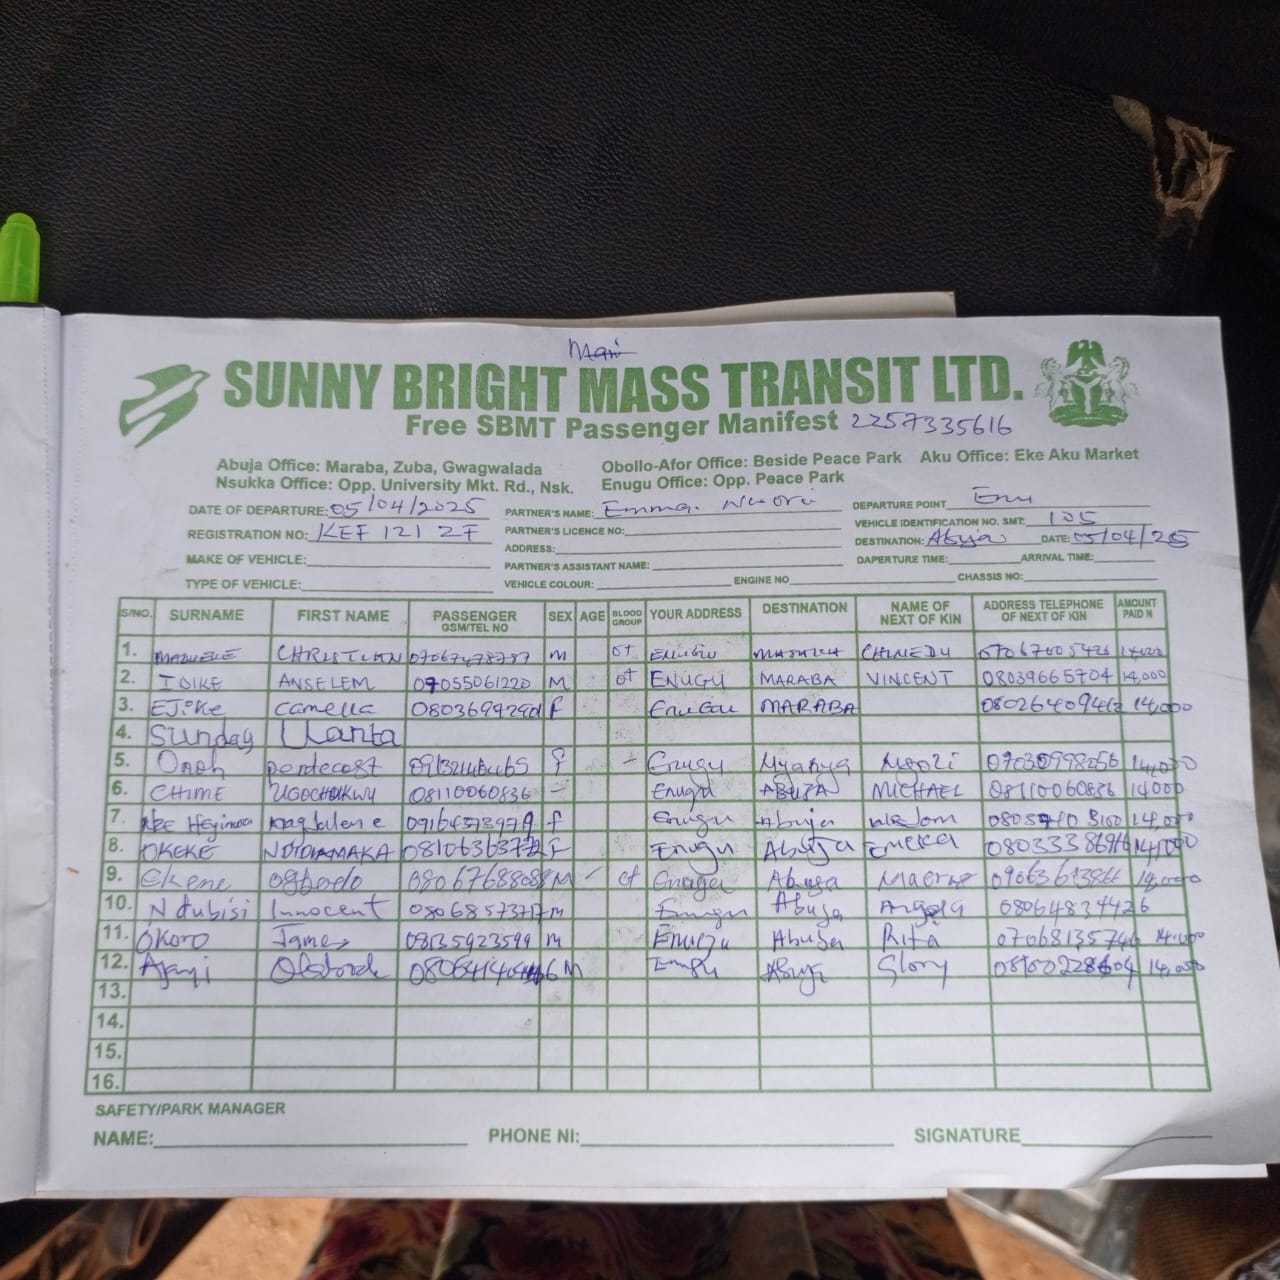 SUNNY BRIGHT MASS TRANSIT LTD.
Free SBMT Passenger Manifest 2257335616
Abuja Office: Maraba, Zuba, Gwagwalada
Nsukka Office: Opp. University Mkt. Rd., Nsk.
Obollo-Afor Office: Beside Peace Park Aku Office: Eke Aku Market
Enugu Office: Opp. Peace Park
DATE OF DEPARTURE: 05/04/2025 PARTNER'S NAME: Emma. DEPARTURE POINT Enu
REGISTRATION NO: KEF 121 ZF PARTNER'S LICENCE NO: VEHICLE IDENTIFICATION NO. SMT: 105
ADDRESS: DESTINATION: Abuja DATE: 05/04/25
MAKE OF VEHICLE: PARTNER'S ASSISTANT NAME: DAPERTURE TIME: ARRIVAL TIME:
TYPE OF VEHICLE: VEHICLE COLOUR: ENGINE NO CHASSIS NO:
S/NO. SURNAME FIRST NAME PASSENGER GSM/TEL NO SEX AGE BLOOD GROUP YOUR ADDRESS DESTINATION NAME OF NEXT OF KIN ADDRESS TELEPHONE OF NEXT OF KIN AMOUNT PAID N
1. MADUEKE CHRISTIAN M O+ ENUGU CHINEDU 07067005426
2. IDIKE ANSELEM 07055061220 M O+ ENUGU MARABA VINCENT 08039665704 14,000
3. EJIKE Camella F Enugu MARABA 14,000
4. Sunday
5. Onoh pentecost F + Enugu Nyanya Ngozi 07030998056 14,000
6. CHIME UGOCHUKWU 08110060836 - Enugu ABUJA MICHAEL 08110060836 14000
7. Magdalene F Enugu Abuja 14,000
8. OKEKE NDIDIAMAKA F Enugu Abuja Emeka 14,000
9. Ekene M Enugu Abuja 14,000
10. Ndubisi Innocent M Enugu Abuja Angela 08064834426
11. Okoro James 08135923599 M Enugu Abuja Rita 14,000
12. Ajayi M Enugu Abuja Glory 14,000
13.
14.
15.
16.
SAFETY/PARK MANAGER
NAME: PHONE NI: SIGNATURE